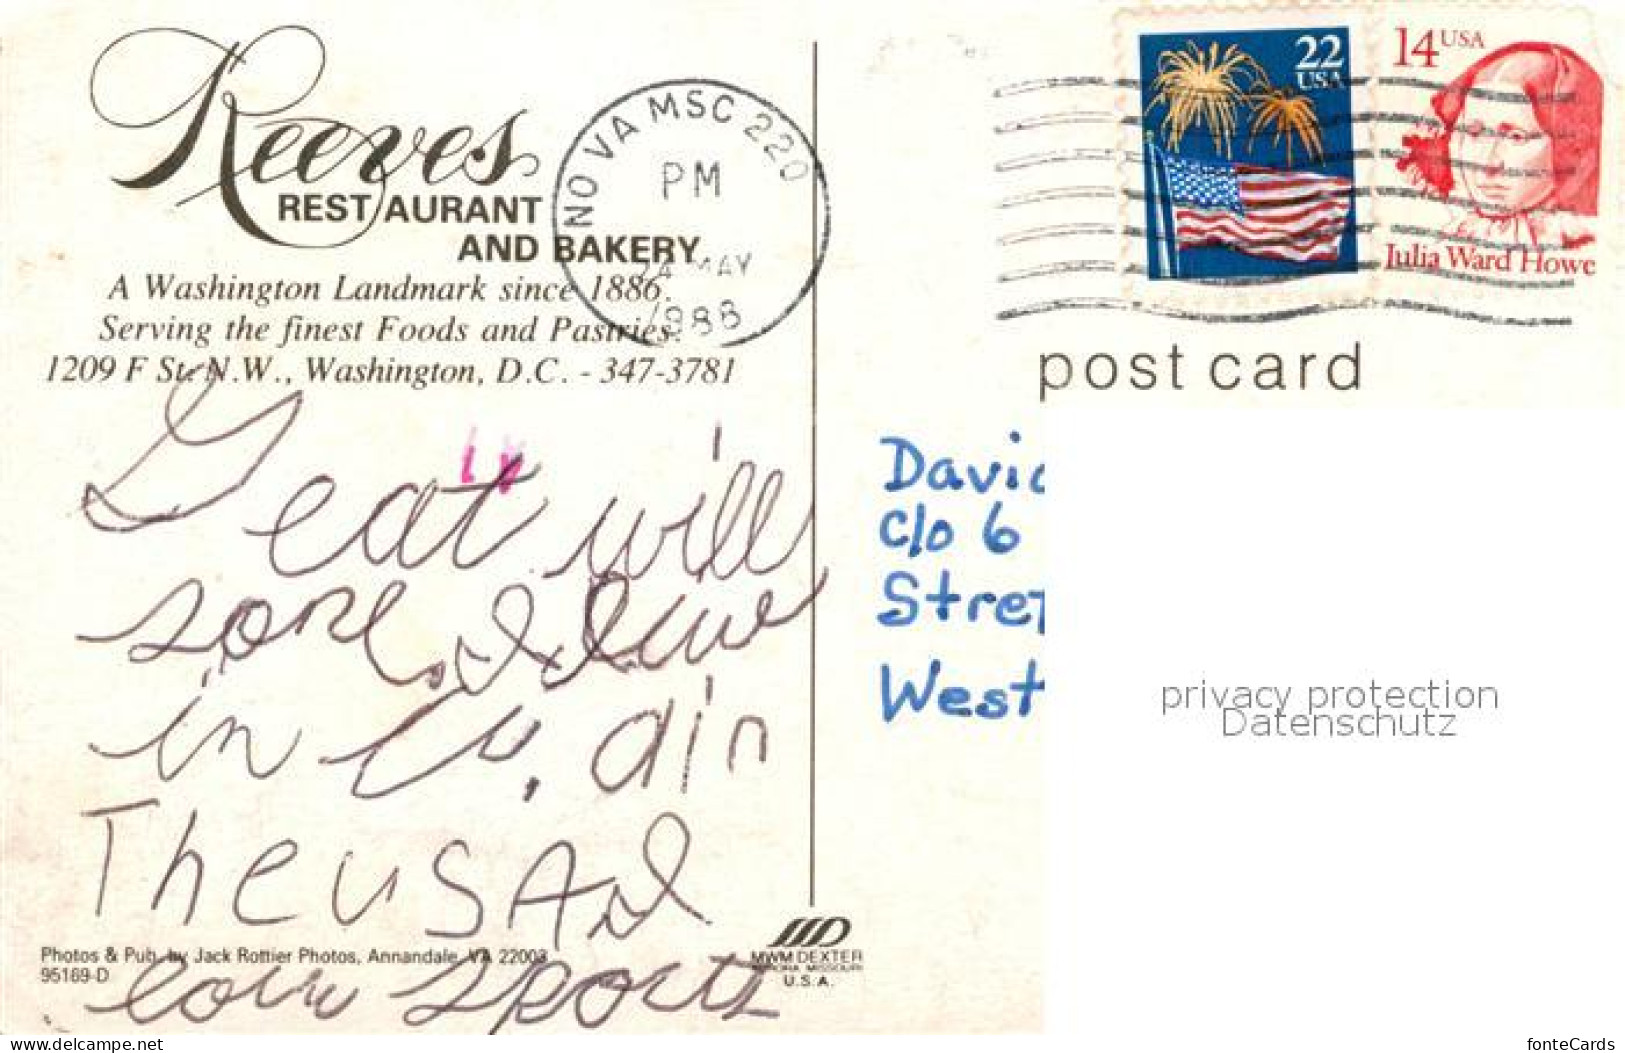 Reeves
RESTAURANT
AND BAKERY
A Washington Landmark since 1886.
Serving the finest Foods and Pastries.
1209 F St. N.W., Washington, D.C. - 347-3781
NO VA MSC 220
PM
24 MAY
1988
22
USA
14 USA
Julia Ward Howe
post card
eat will
I
in
in
The USA I
sports
Davi
C/o 6
Stre
West
privacy protection
Datenschutz
Photos & Pub. by Jack Rottier Photos, Annandale, VA 22003
95169-D
MWM DEXTER
AURORA, MISSOURI
U.S.A.
www.delcampe.net
fonteCards